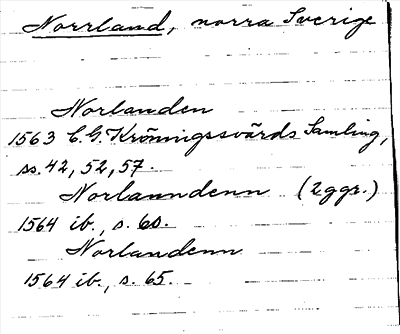 Norrland, norra Sverige
Norlanden
1563 C. G. Krönigssvärds Samling,
ss. 42, 52, 57.
Norlanndenn (2 ggr.)
1564 ib., s. 60.
Norlandenn
1564 ib., s. 65.